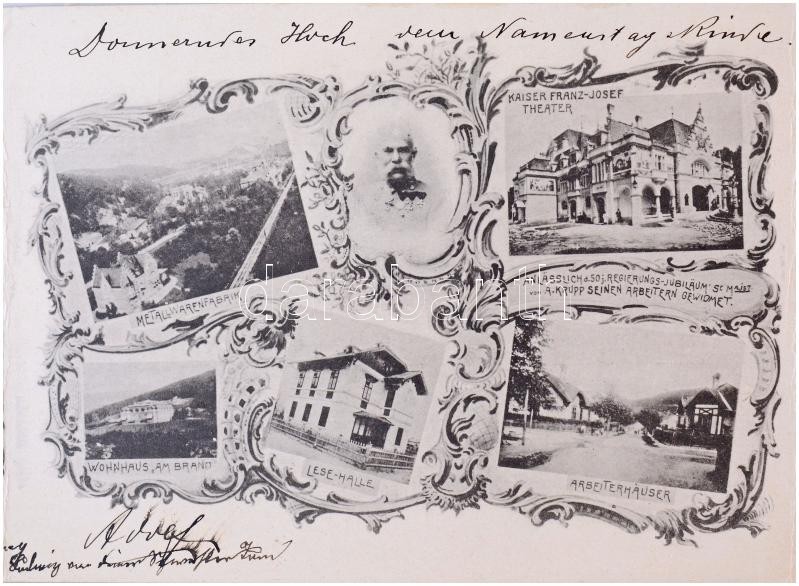 Donnerndes Hoch dem Namenstag Kinde.
KAISER FRANZ-JOSEF
THEATER
METALLWARENFABRIK
ANLÄSSLICH d. 50j. REGIERUNGS-JUBILÄUM Sr MAJST
von A. KRUPP SEINEN ARBEITERN GEWIDMET.
darabanth
WOHNHAUS, AM BRAND
LESE-HALLE
ARBEITERHÄUSER
Adolf
Ludwig